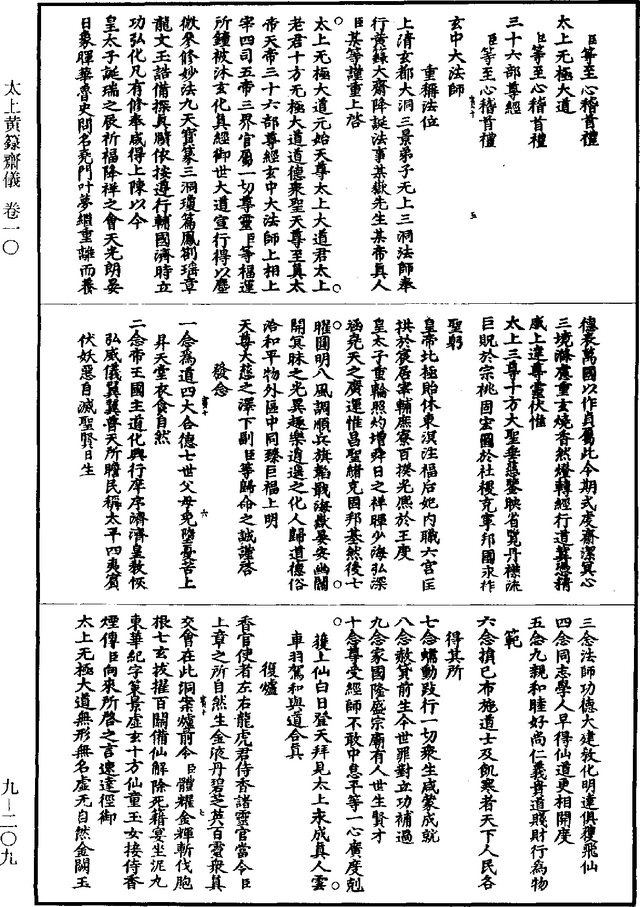 臣等至心稽首禮
太上无極大道
臣等至心稽首禮
三十六部尊經
臣等至心稽首禮
玄中大法師
重稱法位
上清玄都大洞三景弟子无上三洞法師奉
行黃籙大齋降誕法事某嶽先生某帝真人
臣某等謹重上啓
太上无極大道元始天尊太上大道君太上
老君十方无極大道道德衆聖天尊至真太
帝天帝三十六部尊經玄中大法師上相上
宰四司五帝三界官屬一切尊靈臣等福運
所鍾被沐玄化真經御世大道宣行得以塵
微參修妙法九天寶篆三洞瓊篇鳳劄瑶章
龍文玉誥備探真賾依按遵行輔國濟時立
功弘化凡有修奉咸得上陳以今
皇太子誕瑞之辰祈福降祥之會天光朗晏
日象暉華魯史問名堯門叶夢繼重離而養
德表萬國以作貞屬此今期式虔齋潔冀心
三境瀞慮重玄燒香然燈轉經行道冀憑精
感上達尊靈伏惟
太上三尊十方大聖垂慈鑒映省覽丹襟流
巨貺於宗祧固宏圖於社稷克寧邦國永祚
聖躬
皇帝比極貽休東溟注福后妃内職六宫匡
拱於宸居宰輔庶寮百揆光熙於王度
皇太子重輪照灼增舜日之祥暉少海弘深
涵堯天之廣運惟昌聖緒克固邦基然後七
曜圓明八風調順兵旗韜戢海嶽晏安幽關
開冥昧之光異趣樂逍遥之化人歸道德俗
洽和平物外區中同臻巨福上明
天尊大慈之澤下副臣等歸命之誠謹啓
發念
一念為道四大合德七世父母免墮憂苦上
昇天堂衣食自然
二念帝王國主道化興行庠序濟濟皇教恢
弘威儀翼翼普天所瞻民稱太平四夷賓
伏妖惡自滅聖賢日生
三念法師功德大建敎化明達俱獲飛仙
四念同志學人早得仙道更相開度
五念九親和睦好尚仁義貴道賤財行為物
範
六念損己布施道士及飢寒者天下人民各
得其所
七念蠕動跂行一切衆生咸蒙成就
八念赦貰前生今世罪對立功補過
九念家國隆盛宗廟有人世生賢才
十念尊受經師不敢中怠平等一心廣度剋
獲上仙白日登天拜見太上永成真人雲
車羽駕和與道合真
復爐
香官使者左右龍虎君侍香諸靈官當令臣
上章之所自然生金液丹碧芝英百靈衆真
交會在此洞案爐前令臣體耀金輝斬伐胞
根七玄拔擢百關備仙解除死籍宴坐泥丸
東華紀字策景虛玄十方仙童玉女接侍香
煙傳臣向來所啓之言速達徑御
太上无極大道無形無名虛无自然金闕玉
太上黃籙齋儀 卷一〇
九—二〇九